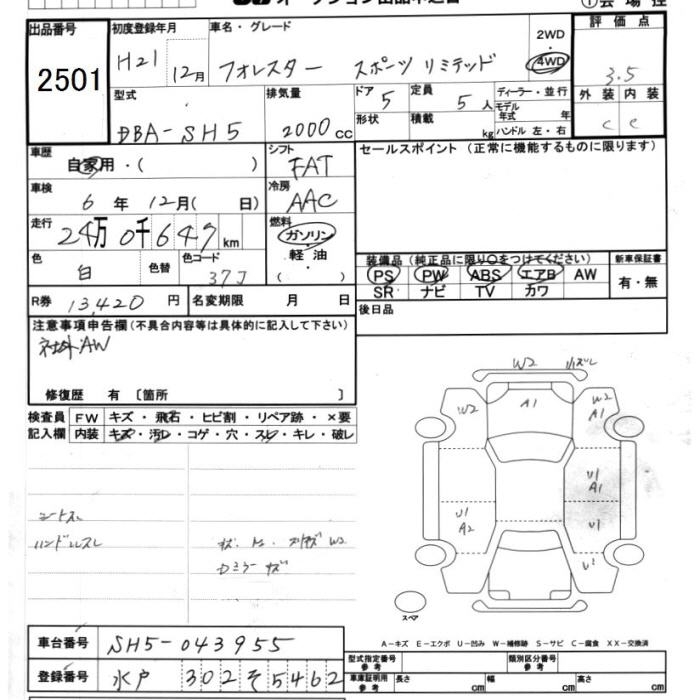 オークション出品申込書
①会場控
出品番号 2501
初度登録年月 H21 12月
車名・グレード フォレスター スポーツリミテッド
2WD・4WD
評価点 3.5
外装 内装
C C
型式 DBA-SH5
排気量 2000cc
ドア 5
形状
定員 5人
積載 kg
ディーラー・並行
モデル年式 年
ハンドル 左・右
車歴 自家用・( )
シフト FAT
セールスポイント(正常に機能するものに限ります)
車検 6年 12月( 日)
冷房 AAC
走行 24万0千647km
燃料 ガソリン・軽油・( )
色 白 色替 色コード 37J
装備品(純正品に限り○をつけてください)
PS PW ABS エアB AW
SR ナビ TV カワ
新車保証書
有・無
R券 13,420円
名変期限 月 日
後日品
注意事項申告欄(不具合内容等は具体的に記入して下さい)
社外AW
修復歴 有〔箇所 〕
検査員記入欄
FW キズ・飛石・ヒビ割・リペア跡・×要
内装 キズ・汚レ・コゲ・穴・スレ・キレ・破レ
シートスレ
ハンドルスレ
W2
W2
A1
W2
A1
U1
A1
U1
A2
U1
U1
スペア
A-キズ E-エクボ U-凹み W-補修跡 S-サビ C-腐食 XX-交換済
車台番号 SH5-043955
登録番号 水戸 302 そ 5462
型式指定番号 参考
類別区分番号 参考
車庫証明用 参考
長さ cm
幅 cm
高さ cm